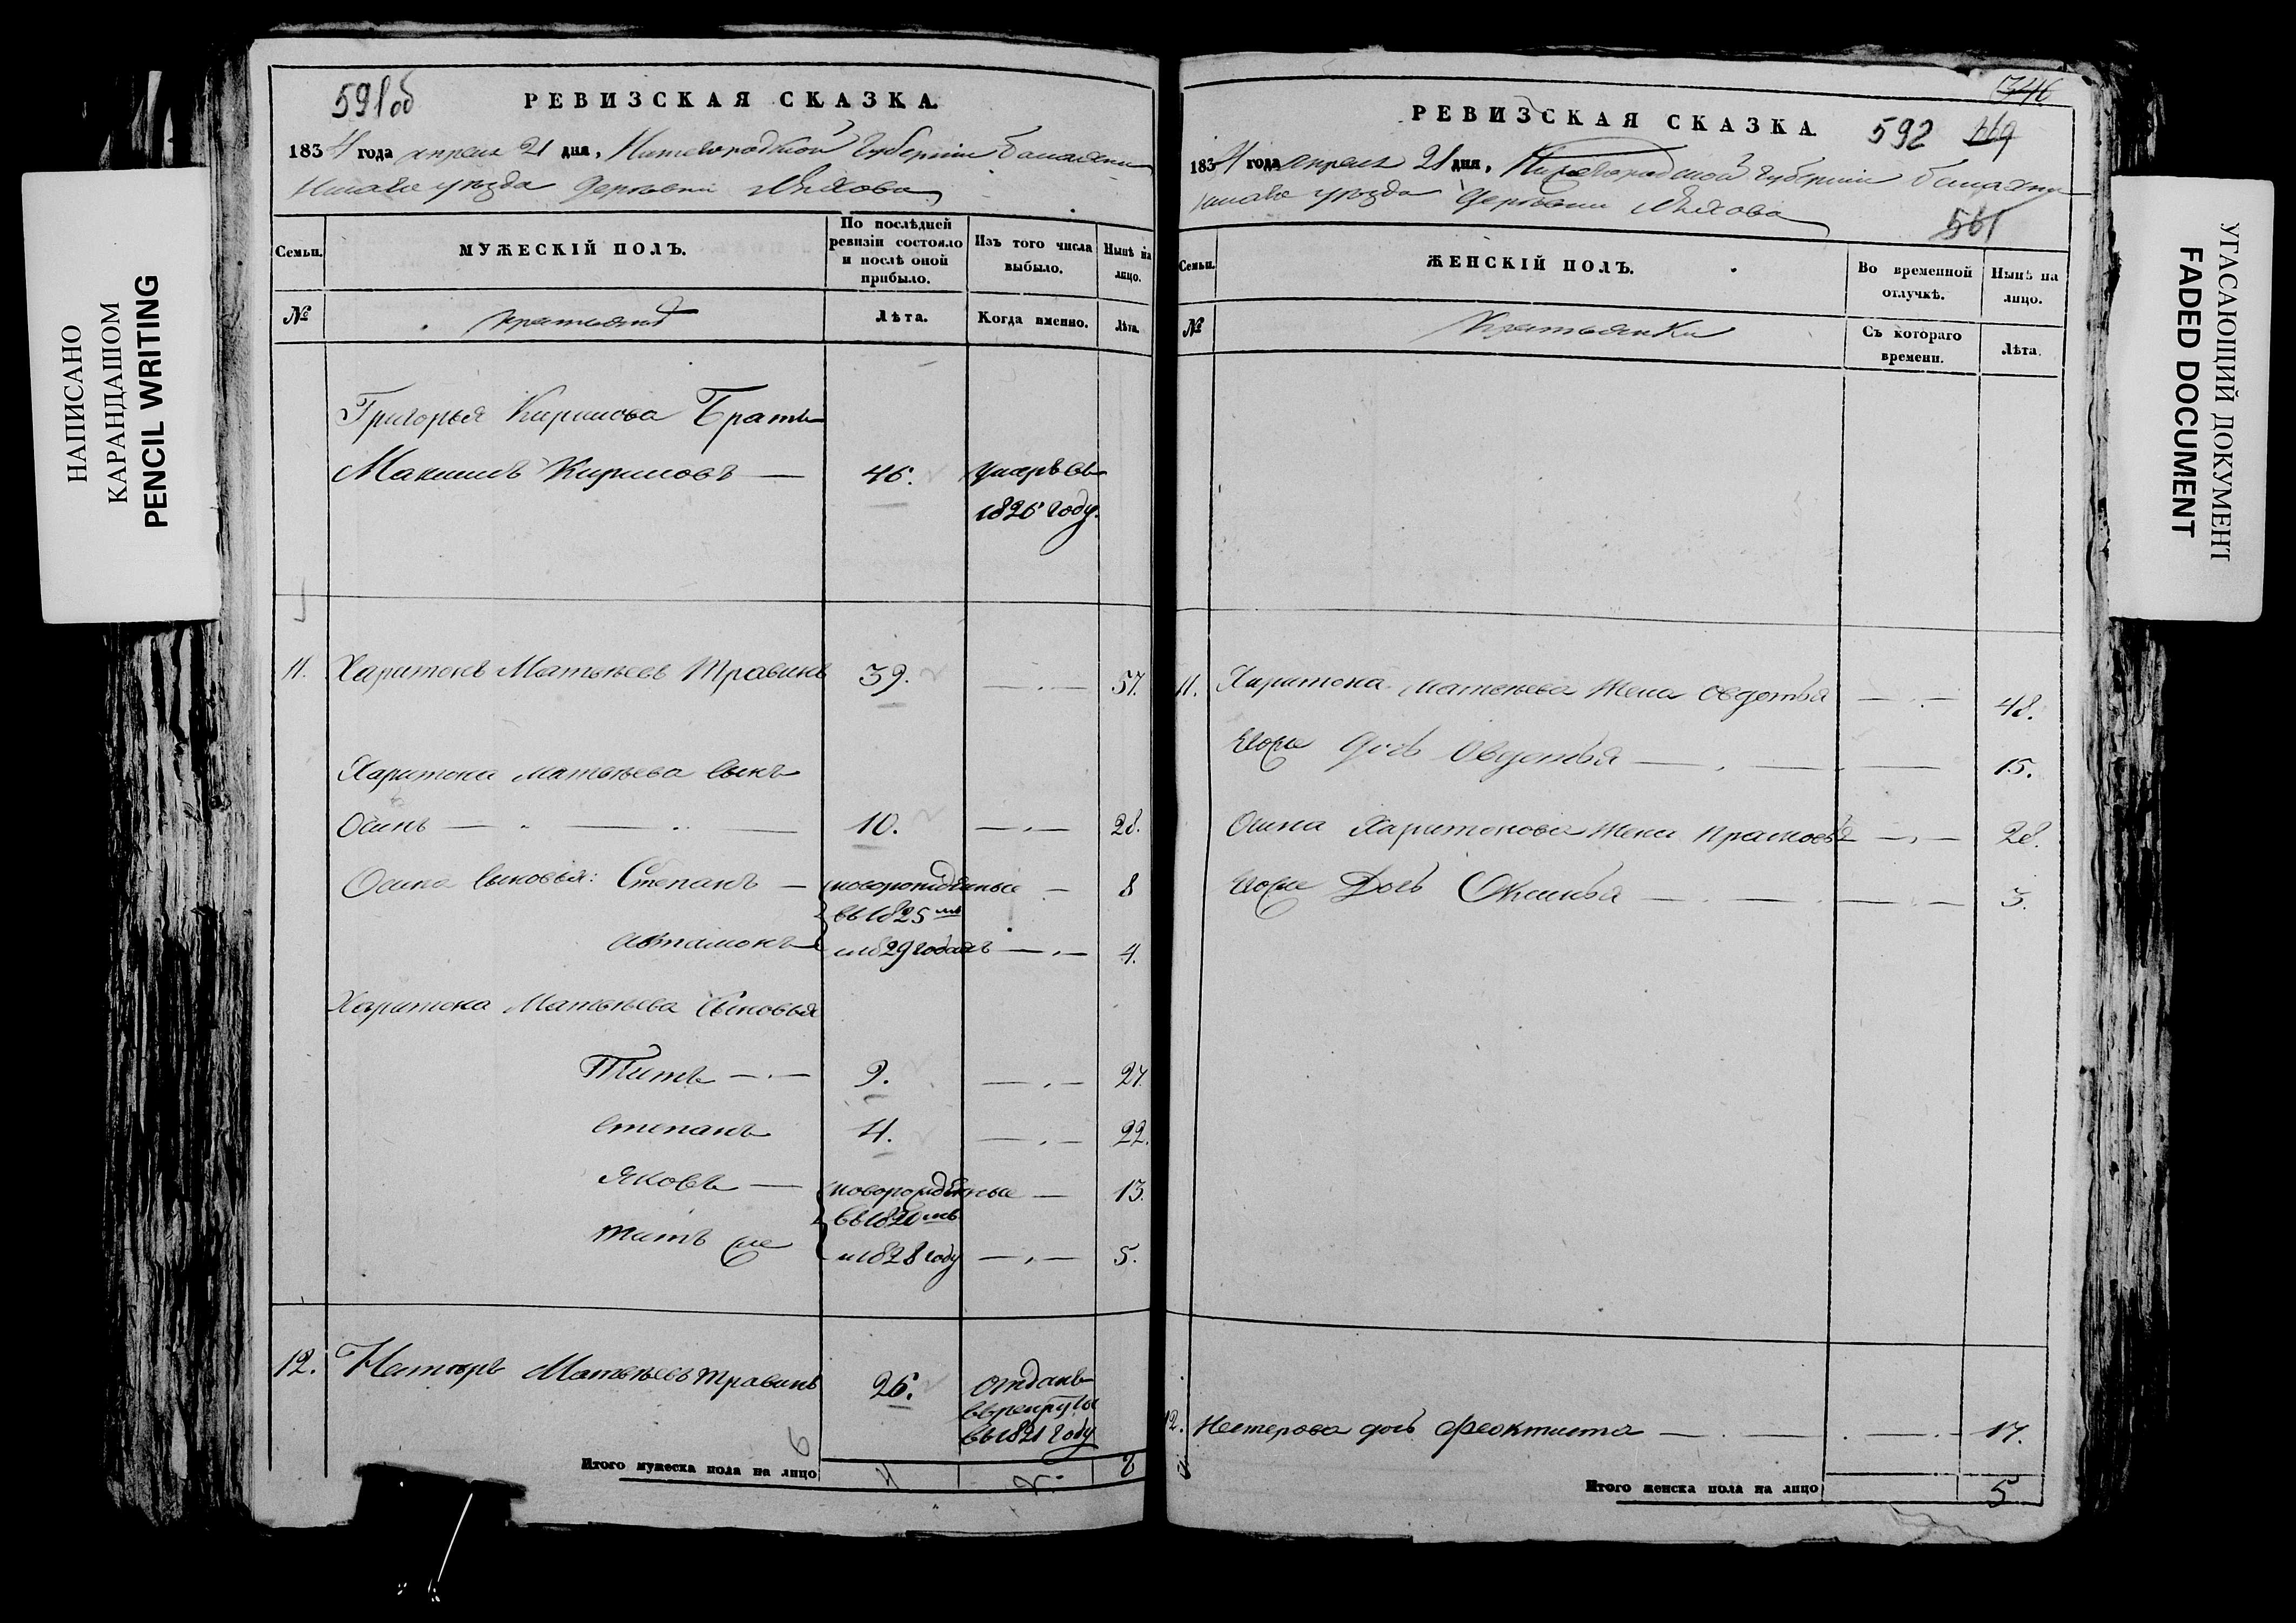 НАПИСАНО
КАРАНДАШОМ
PENCIL WRITING
591об
РЕВИЗСКАЯ СКАЗКА.
1834 года апреля 21 дня, Нижегородской Губернии Балахнин
скаго уезда деревни
Семьи.
МУЖЕСКІЙ ПОЛЪ.
По послѣдней ревизіи состояло и послѣ оной прибыло.
Изъ того числа выбыло.
Нынѣ на лицо.
№
крестьяне
Лѣта.
Когда именно.
Лѣта.
Григорья Кирилова Братъ
Максимъ Кириловъ — 46. умеръ въ
1826 году.
11. Харитонъ Матвѣевъ Травинъ 39. — 57.
Харитона Матвѣева сынъ
Осипъ — 10. — 28.
Осипа сыновья: Степанъ — новорожденные — 8
въ 1825мъ
Автамонъ и 1829 годахъ — 4.
Харитона Матвѣева Сыновья
Титъ — 9. — 27.
Степанъ 4. — 22.
Яковъ — новорожденные — 13.
въ 1820мъ
Титъ же и 1828 году — 5.
12. Нестеръ Матвѣевъ Травинъ 26. отданъ
въ рекруты
въ 1821 году
6
Итого мужеска пола на лицо 8
346
РЕВИЗСКАЯ СКАЗКА.
592
569
1834 года апреля 21 дня, Нижегородской Губернии Балахнин
скаго уезда деревни
561
Семьи.
ЖЕНСКІЙ ПОЛЪ.
Во временной отлучкѣ.
Нынѣ на лицо.
№
Крестьянки
Съ котораго времени.
Лѣта.
11. Харитона Матвѣева жена Овдотья — 48.
Егоже дочь Овдотья — 15.
Осипа Харитонова жена Прасковья — 28.
Егоже Дочь Оксинья — 3.
12. Нестерова дочь Феоктиста — 17.
Итого женска пола на лицо 5
УГАСАЮЩИЙ ДОКУМЕНТ
FADED DOCUMENT